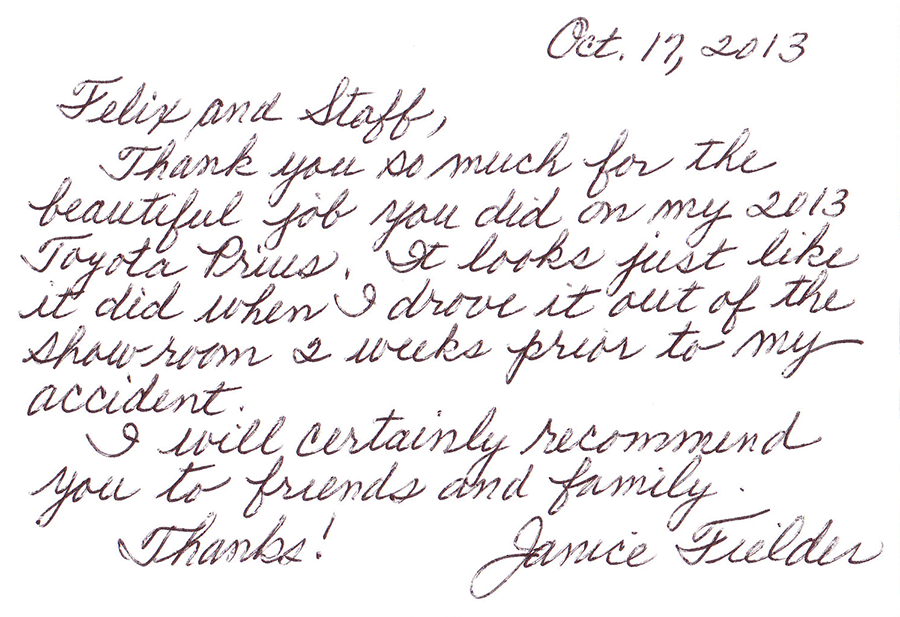 Oct. 17, 2013
Felix and Staff,
Thank you so much for the
beautiful job you did on my 2013
Toyota Prius. It looks just like
it did when I drove it out of the
showroom 2 weeks prior to my
accident.
I will certainly recommend
you to friends and family.
Thanks! Janice Fielder